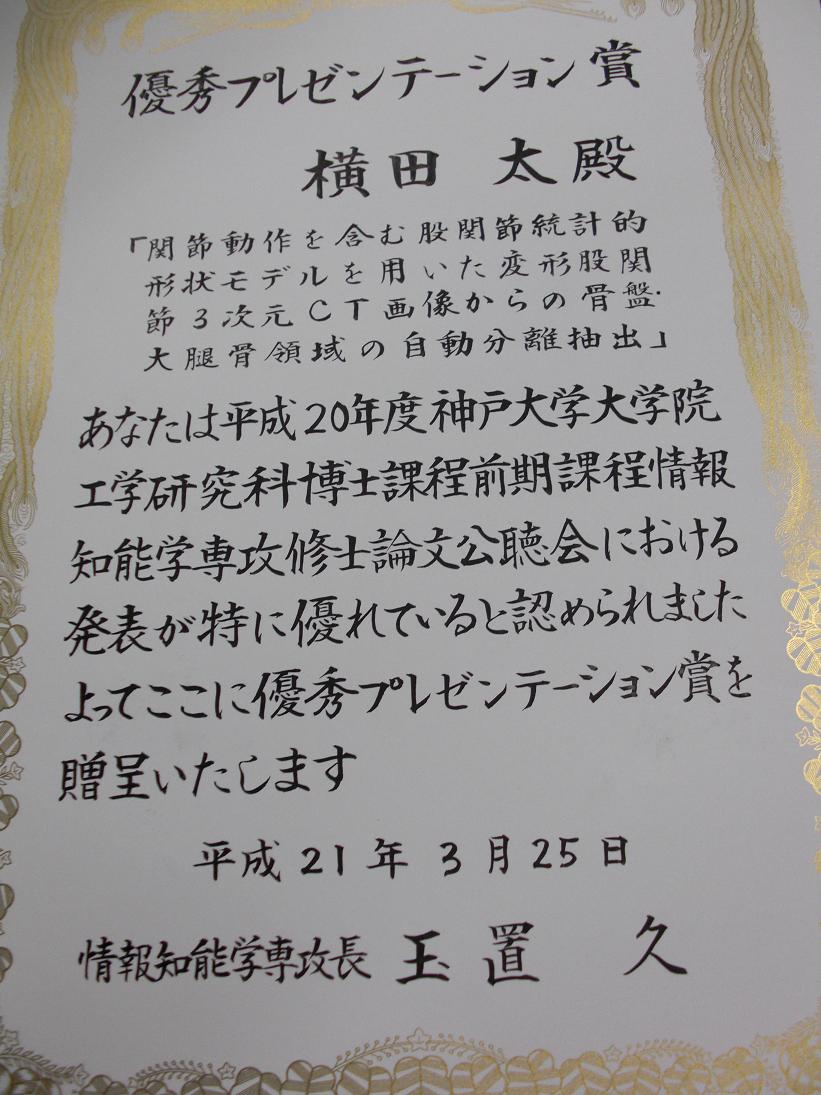 優秀プレゼンテーション賞
横田 太殿
「関節動作を含む股関節統計的
形状モデルを用いた変形股関
節3次元CT画像からの骨盤・
大腿骨領域の自動分離抽出」
あなたは平成20年度神戸大学大学院
工学研究科博士課程前期課程情報
知能学専攻修士論文公聴会における
発表が特に優れていると認められました
よってここに優秀プレゼンテーション賞を
贈呈いたします
平成21年3月25日
情報知能学専攻長 玉置 久